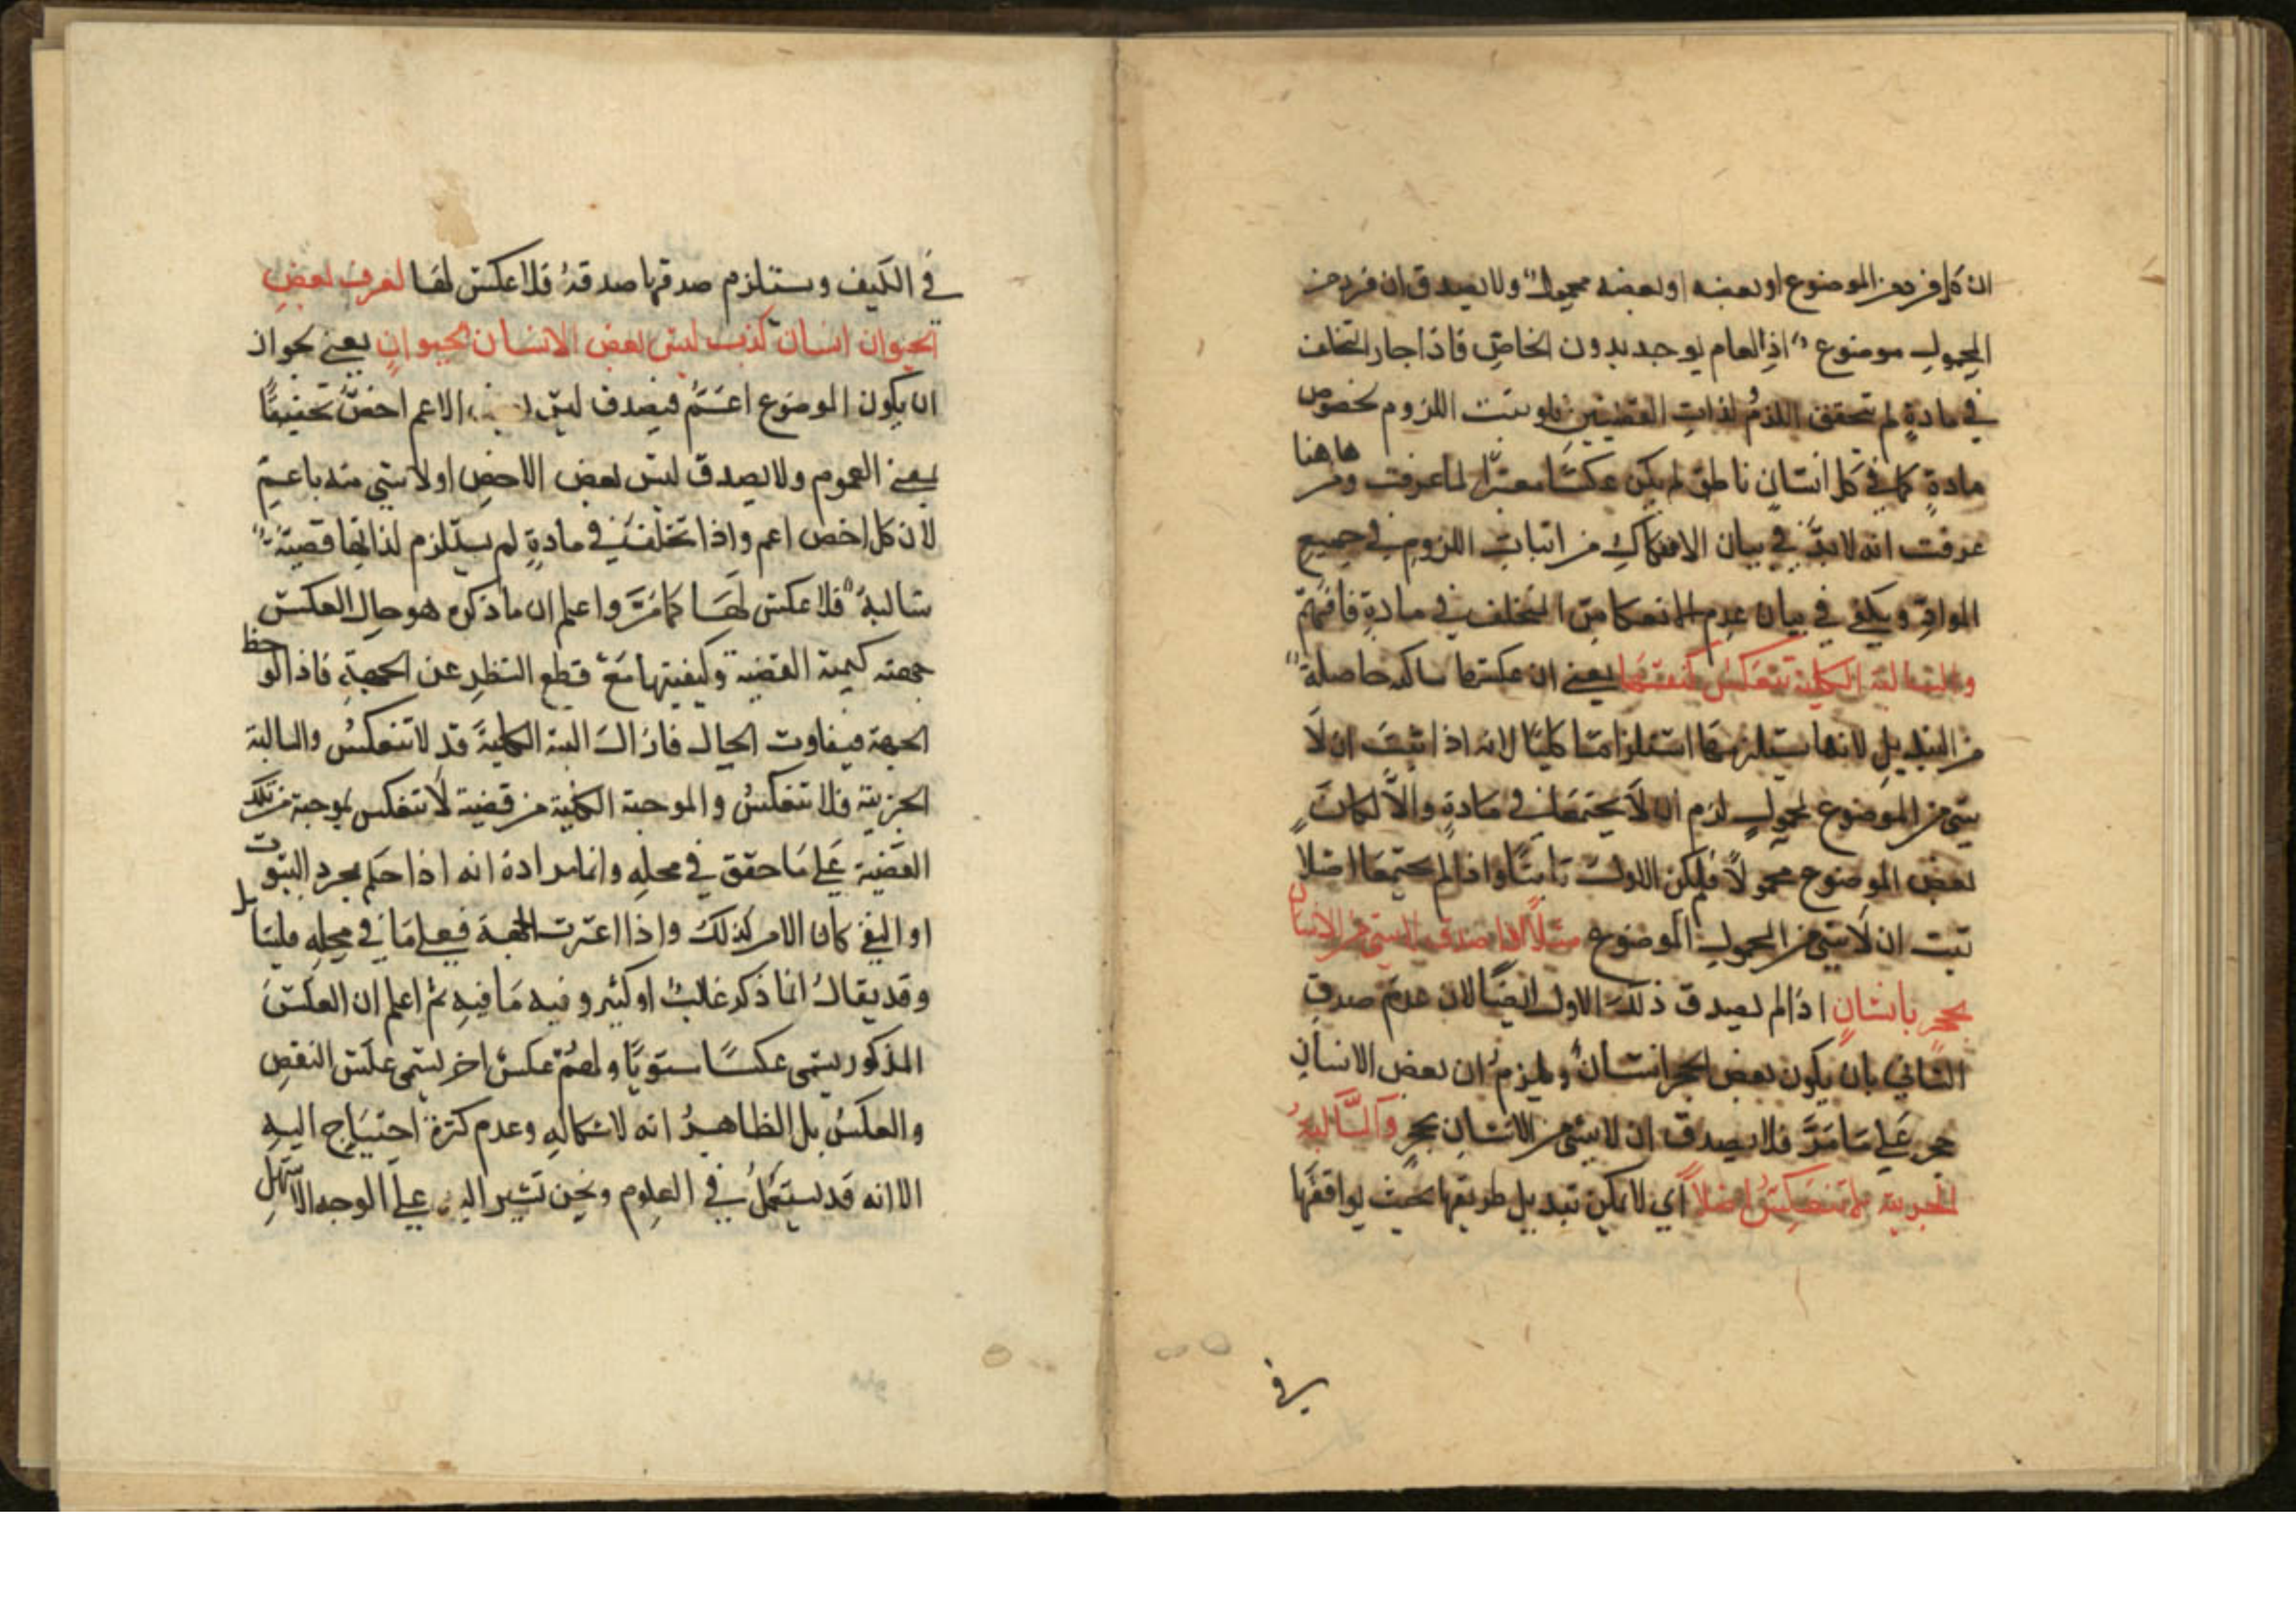 ان كل فرد من الموضوع او بعضه او بعضه محمول ولا يصدق ان فرد من
المحمول موضوع اذ العام يوجد بدون الخاص فاذا جاز التخلف
في مادة لم تحقق اللزم لذات القضيتين ولو ثبت اللزوم بخصوص
مادة كما في كل انسان ناطق لم يكن عكسا معتبرا لما عرفت ومن هاهنا
عرفت انه لا بد في بيان الانعكاك من اثبات اللزوم في جميع
المواد ويكفي في بيان عدم الانعكاس التخلف في مادة فافهم
والسالبة الكلية تنعكس كنفسها يعني ان عكسها سالبة حاصلة
من التبديل لانها يستلزمها استلزاما كليا لانه اذا ثبت ان لا
شيء من الموضوع بمحمول لزم ان لا يجتمعا في مادة والا لكان
بعض الموضوع محمولا فلم يكن الاول ثابتا واذا لم يجتمعا اصلا
ثبت ان لا شيء من المحمول الموضوع مثلا اذا صدق لا شيء من الانسان
بحجر بانسان اذ لم يصدق ذلك الاول ايضا لان عدم صدق
الثاني بان يكون بعض الحجر انسان ويلزم ان بعض الانسان
حجر على ما مر فلا يصدق ان لا شيء من الانسان بحجر والسالبة
الجزيية لا تنعكس اصلا اي لا يمكن تبديل طرفيها بحيث يوافقها
في
في الكيف ويستلزم صدقها صدقه فلا عكس لها لغرف بعض
الحيوان انسان كذب ليس بعض الانسان بحيوان يعني بجواز
ان يكون الموضوع اعم فيصدق ليس الاعم اخص تحقيقا
لمعنى العموم ولا يصدق ليس بعض الاخص اولا شي منه باعم
لان كل اخص اعم واذا تخلف في مادة لم يستلزم لذاتها قضية
سالبة فلا عكس لها كما مر واعلم ان ما ذكره هو حال العكس
جهته كمية القضية وكيفيتها مع قطع النظر عن الجهة فاذا لوحظ
الجهة فيفاوت الحال فان السالبة الكلية قد لا تنعكس والسالبة
الجزيية فلا تنعكس والموجبة الكلية من قضية لا تنعكس بموجبة من تلك
القضية على ما حقق في محله وانما مراده انه اذا حكم بمجرد الثبوت
او النفي كان الامر كذلك واذا اعتبرت الجهة فعلى ما في محله فليتأمل
وقد يقال انما ذكر غالب او كثير وفيه ما فيه ثم اعلم ان العكس
المذكور يسمى عكسا مستويا ولهم عكس اخر يسمى عكس النقص
والعكس بل الظاهر انه لاشكاله وعدم كثرة احتياج اليه
الا انه قد يستعمل في العلوم ونحن نشير اليه على الوجه الاسهل